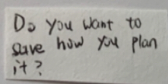 Do you want to
save how you plan
it?